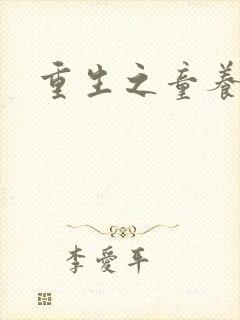 重生之童養
李愛平